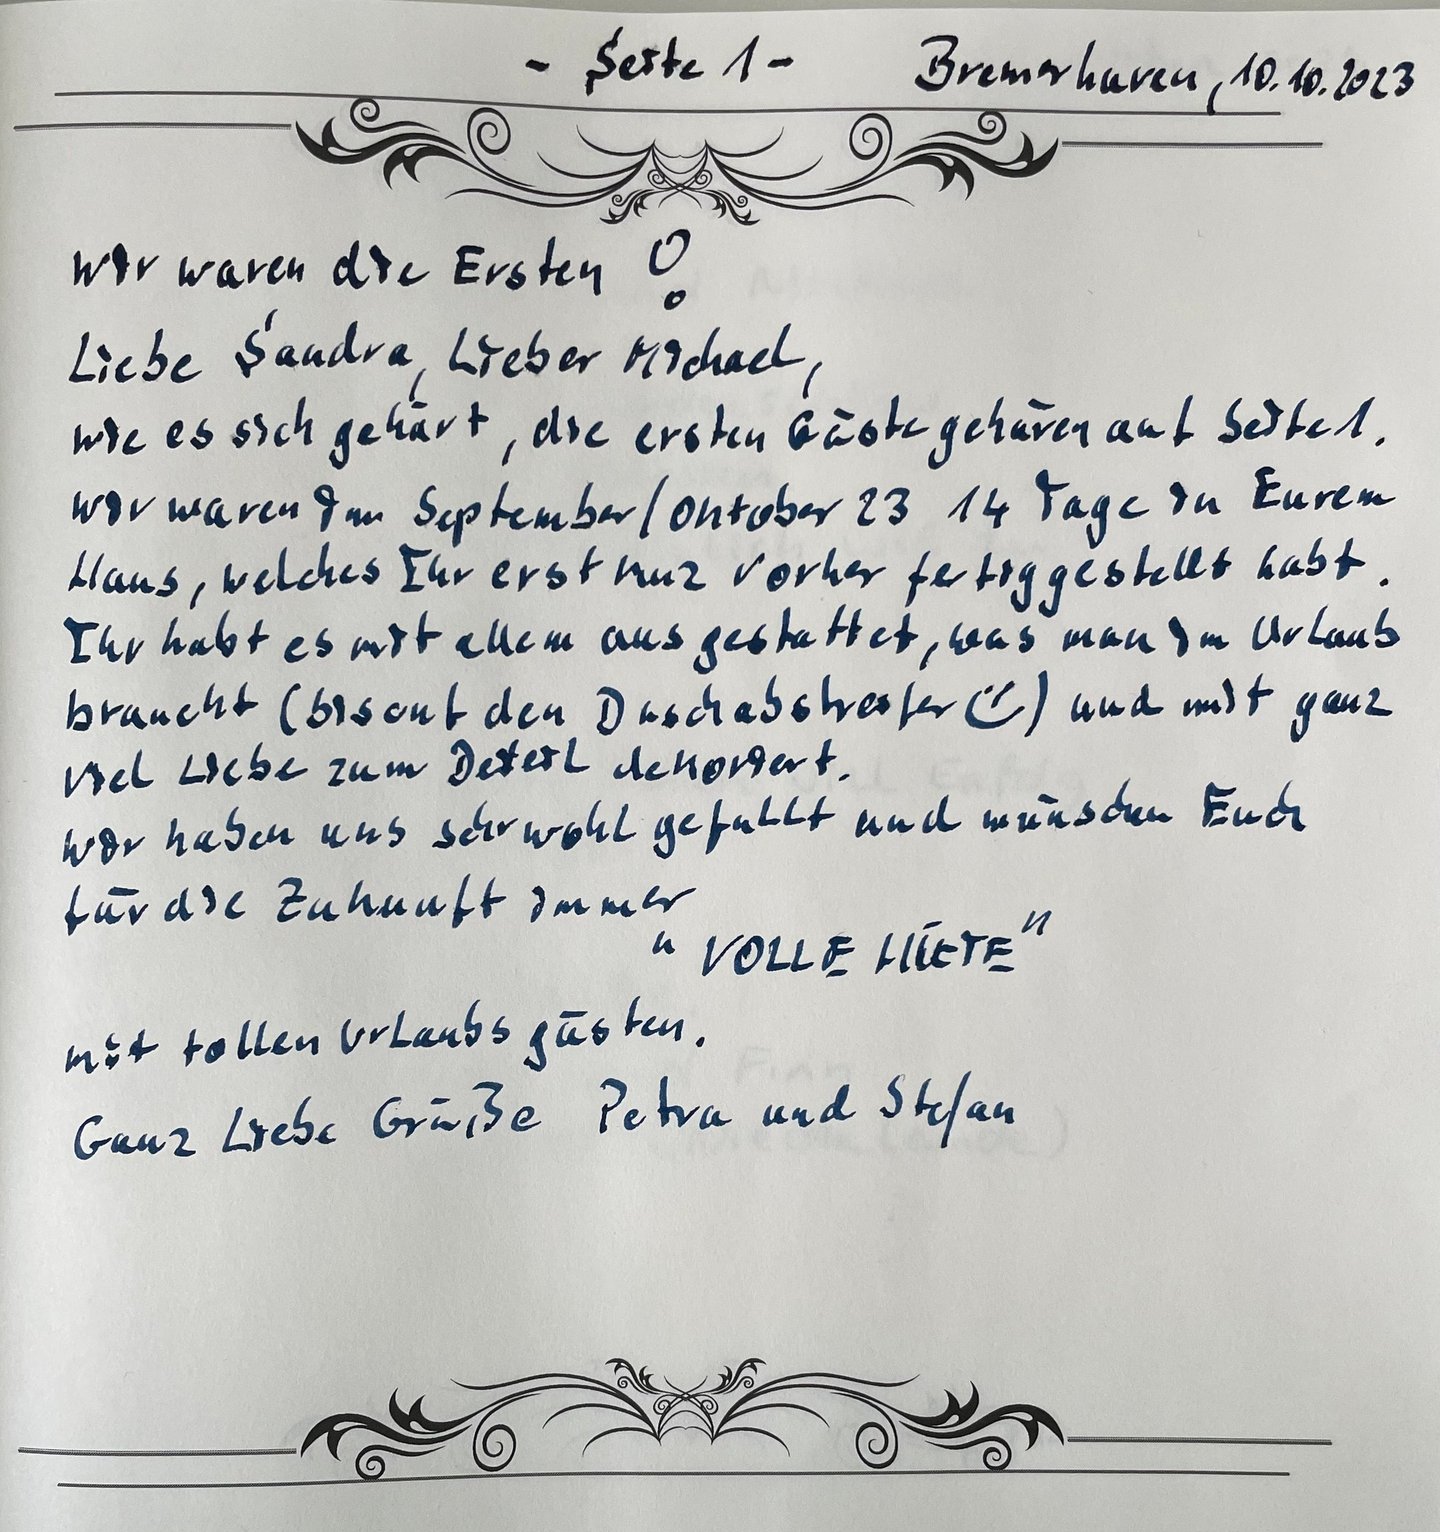 - Seite 1 - Bremerhaven, 10.10.2023
Wir waren die Ersten !
Liebe Sandra, Lieber Michael,
wie es sich gehört, die ersten Gäste gehören auf Seite 1.
Wir waren im September/Oktober 23 14 Tage in Eurem
Haus, welches Ihr erst kurz vorher fertiggestellt habt.
Ihr habt es mit allem ausgestattet, was man im Urlaub
braucht (bis auf den Duschabstreifer ☺) und mit ganz
viel Liebe zum Deteil dekoriert.
Wir haben uns sehr wohl gefühlt und wünschen Euch
für die Zukunft immer
"VOLLE HÜTTE"
mit tollen Urlaubsgästen.
Ganz Liebe Grüße Petra und Stefan